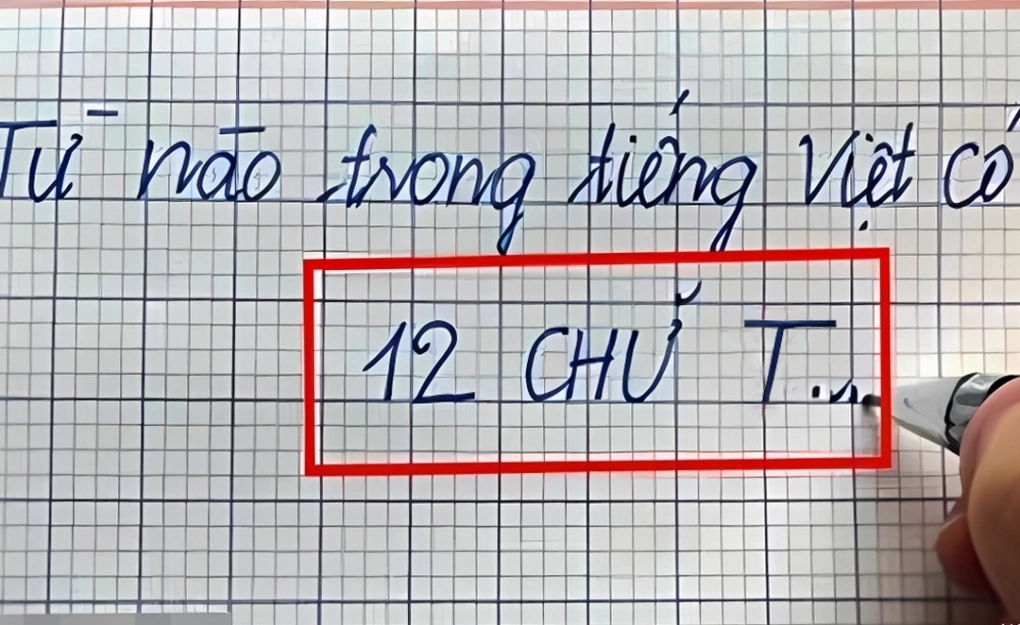 Từ nào trong tiếng Việt có
12 CHỮ T...